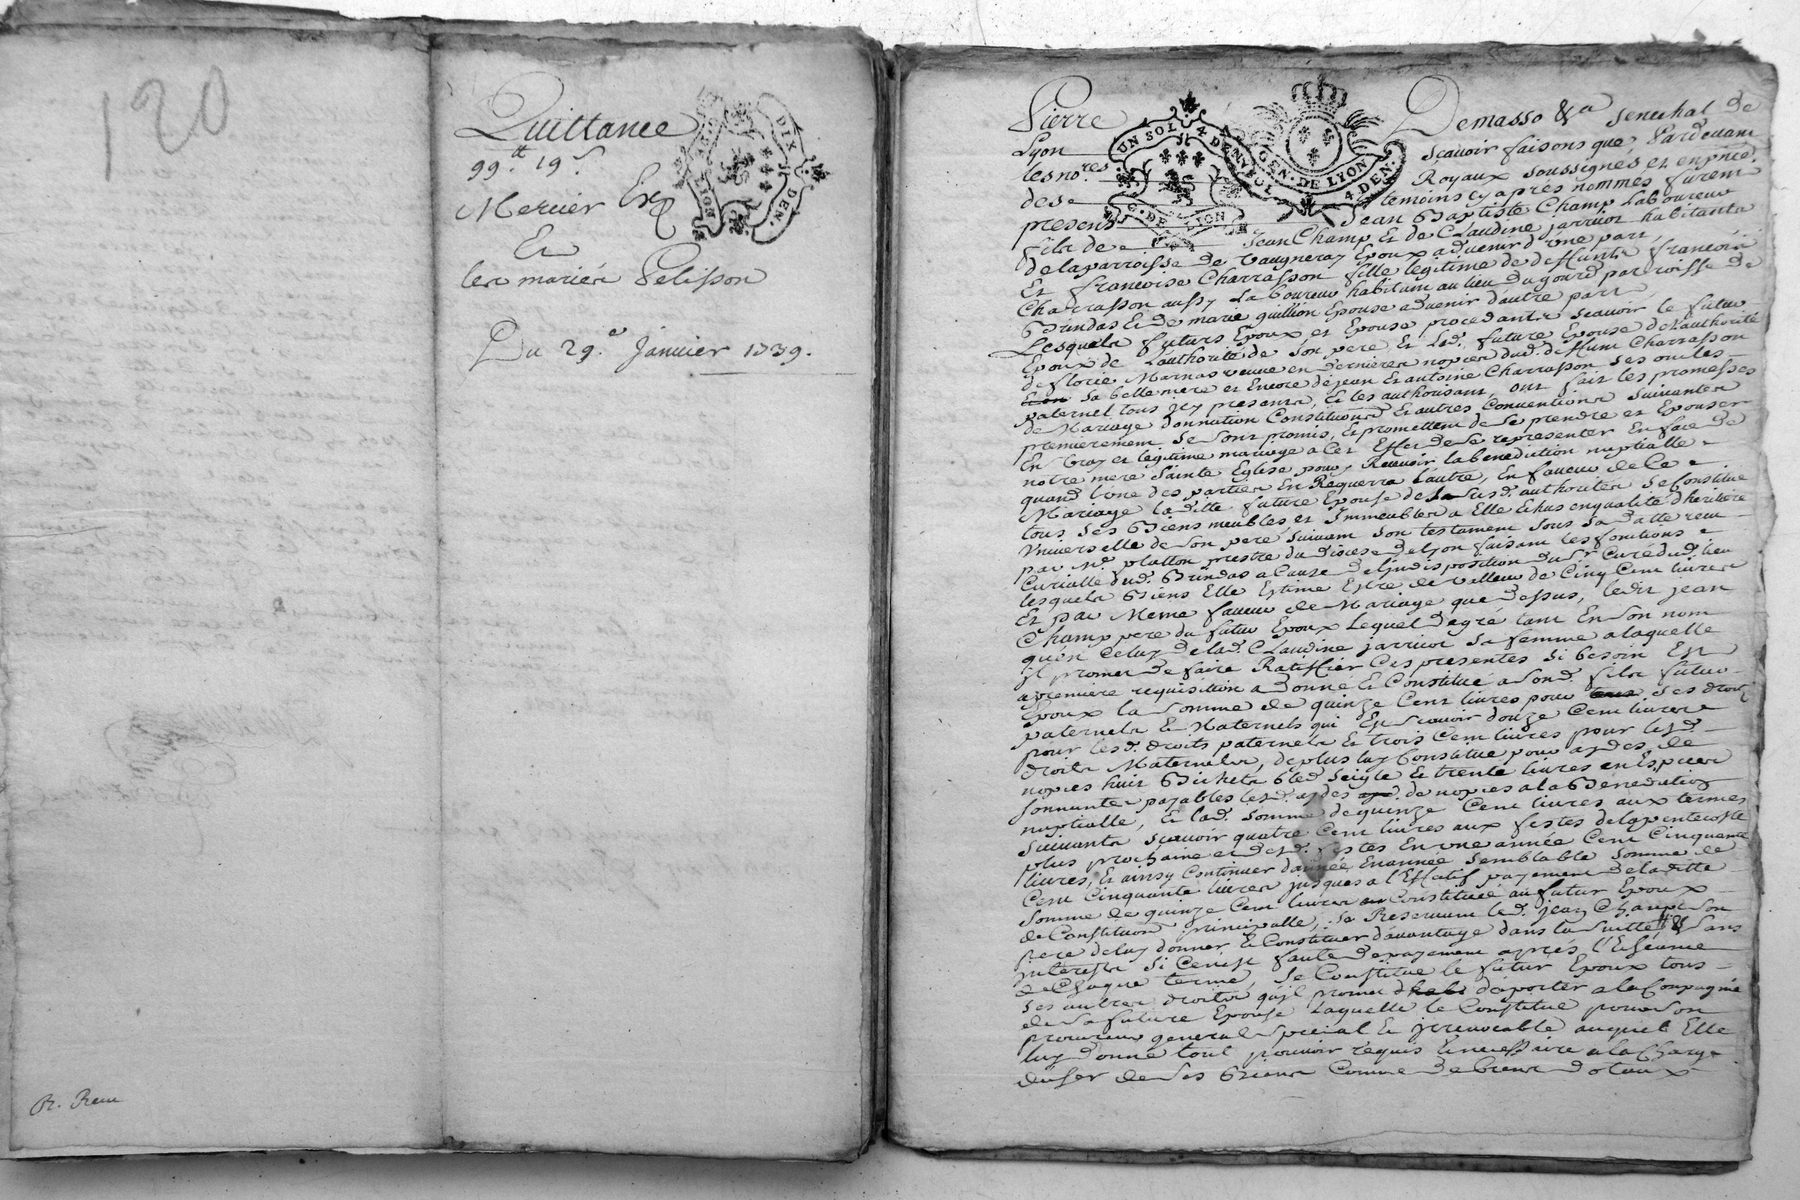 120
Quittance
99.ᵗᵗ 19.ˢ
Mercier Ex
Et
les mariés Pelisson
Du 29.ᵉ Janvier 1739.
DIX DEN.
LYON
R. Reau
UN SOL 4 DEN
G. DE LION
GEN. DE LYON
4 DEN.
Pierre Demasso &a Senechal de
Lyon Scavoir faisons que Pardevant
les no.res Royaux Soussignés et en pnce
des temoins cy apres nommés furent
presens Jean Baptiste Champ Laboureur
fils de Jean Champ Et de Claudine jarricot habitants
de la parroisse de Vaugneray Epoux advenir d'une part
Et francoise Charrasson fille legitime de deffunts francois
Charrasson aussy Laboureur habitant au lieu du gourd parroisse de
Brindas Et de marie guillion Epouse advenir d'autre part
Lesquels futurs Epoux et Epouse procedants scavoir le futur
Epoux de L'authorité de son pere Et lad. future Epouse de L'authorité
de florie Marnas veuve en dernieres nopces dud. deffunt Charrasson
sa belle mere et Encore de jean Et antoine Charrasson ses oncles
paternel tous icy presents, Et les authorisant, ont fait les promesses
de Mariage donnation Constitutions Et autres Conventions suivantes
premierement se sont promis, Et promettent de se prendre et Epouser
En vray et legitime mariage a cet Effet de se representer En face de
notre mere Sainte Eglise pour y Recevoir la benediction nuptialle
quand l'une des parties En Requerra l'autre, En faveur de Ce
Mariage laditte future Epouse de susd. authorités se Constitue
tous ses Biens meubles et Immeubles a Elle Echus en qualité d'heritiere
Universelle de son pere suivant son testament sous sa datte receu
par Mr. platton prestre du diocese de Lyon faisant les fonctions
Curialle dud. Brindas a Cause de l'indisposition du Sr Curé dud. lieu
lesquels Biens Elle Estime Estre de valleur de Cinq Cent livres
Et par Meme faveur de Mariage que dessus, ledit jean
Champ pere du futur Epoux lequel de gré tant En son nom
qu'en Celuy de lad. Claudine jarricot sa femme a laquelle
il promet de faire Ratiffier Ces presentes si besoin Est
a premiere requisition a donné Et Constitué a sond. fils futur
Epoux la somme de quinze Cent livres pour ses droits
paternels Et Maternels qui Est scavoir douze Cent livres
pour lesd. droits paternels Et trois Cent livres pour lesd.
droits Maternels, de plus luy Constitue pour aydes de
nopces huit Bichets bled seigle Et trente livres en Especes
sonnantes payables lesd. aydes de nopces a la Benediction
nuptialle, Et lad. somme de quinze Cent livres aux termes
suivants scavoir quatre Cent livres aux festes de la pentecoste
plus prochaine et desd. festes En une année Cent Cinquante
livres, Et ainsy Continuer d'année, En année semblable somme de
Cent Cinquante livres jusques a l'Effectif payement de laditte
somme de quinze Cent livres Constituée au futur Epoux
de Constitution principalle, se Reservant led. jean Champ son
pere de luy donner Et Constituer d'avantage dans la suitte, & sans
interests si Ce n'est faute de payement aprés l'Echeance
de Chaque terme, se Constitue le futur Epoux tous
ses autres droits qu'il promet d'aporter a la Compagnie
de sa future Epouse laquelle le Constitue pour son
procureur general special Et irrevocable auquel Elle
luy donne tout pouvoir requis Et necessaire a la Charge
d'user de ses Biens Comme de biens dotaux